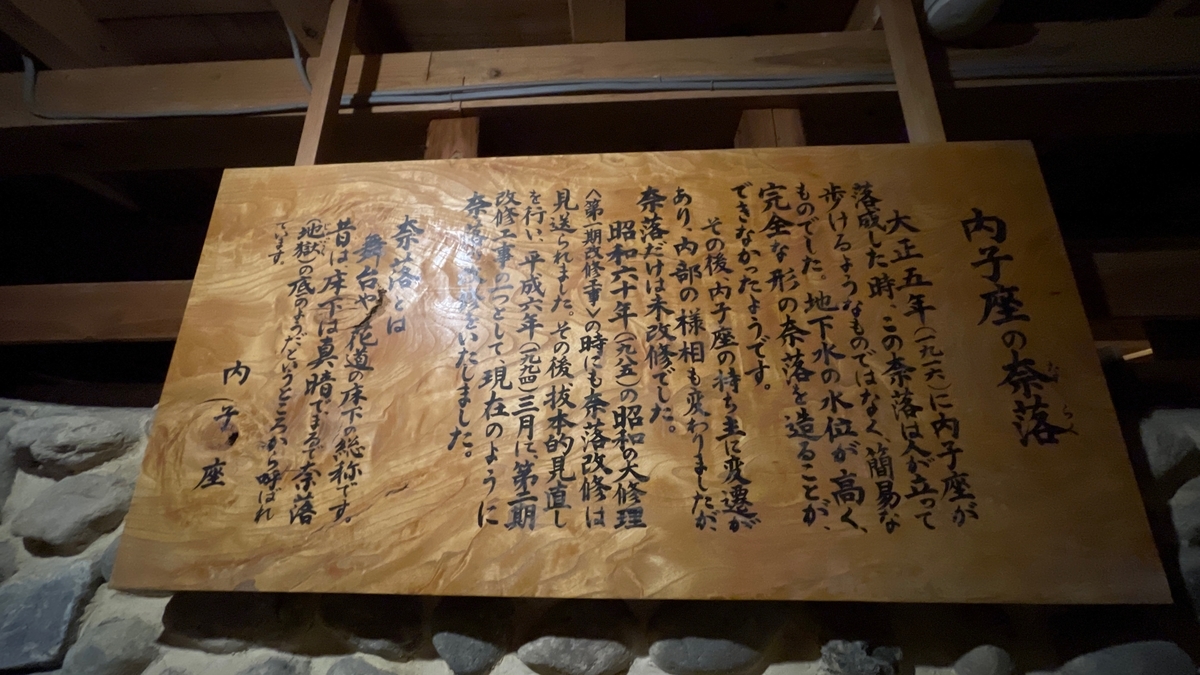 内子座の奈落
なら く
大正五年(一九一六)に内子座が
落成した時、この奈落は人が立って
歩けるようなものではなく、簡易な
ものでした。地下水の水位が高く、
完全な形の奈落を造ることが、
できなかったようです。
その後、内子座の持ち主に変遷が
あり、内部の様相も変わりましたが、
奈落だけは未改修でした。
昭和六十年(一九八五)の昭和の大修理
〈第一期改修工事〉の時にも奈落改修は
見送られました。その後抜本的見直し
を行い、平成六年(一九九四)三月に、第二期
改修工事の一つとして、現在のように
奈落の改修をいたしました。
奈落とは
舞台や花道の床下の総称です。
昔は床下は真暗でまるで奈落
(地獄)の底のようだというところから呼ばれ
ています。
内子座